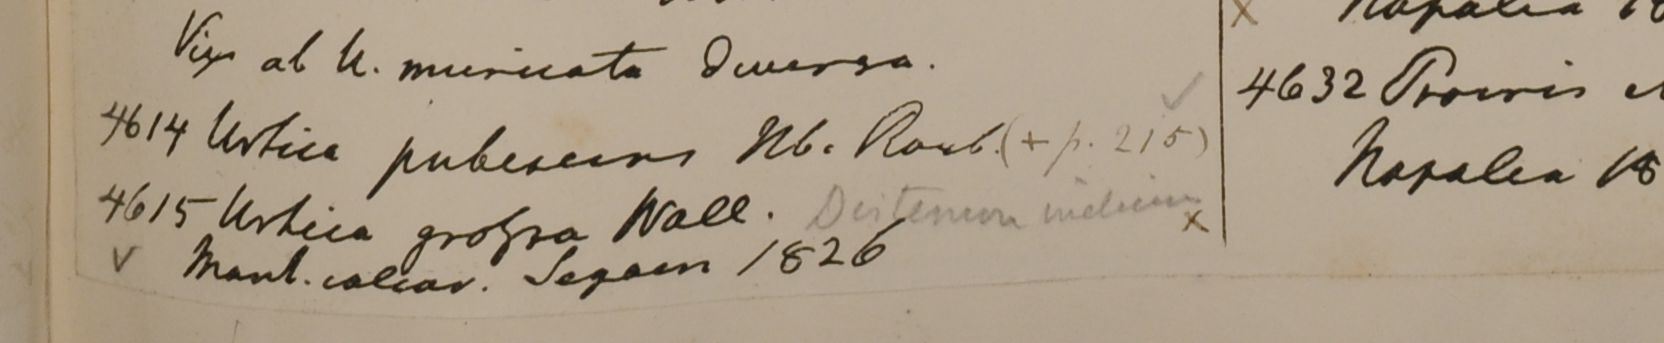 Vix ab U. muricata diversa.
4614 Urtica pubescens Hb. Roxb. (+ p. 215)
4615 Urtica grossa Wall.
Mont. calcar. Segaen 1826
Napalia
4632 Procris
Napalia 18